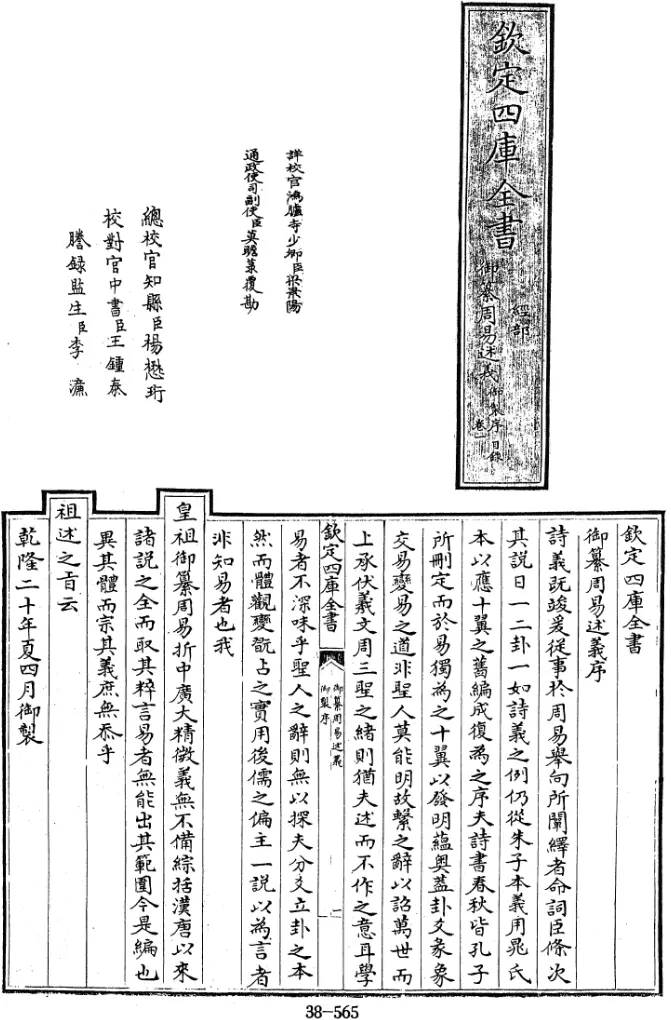 欽定四庫全書
經部
御纂周易述義
御製序 目錄
卷一
詳校官鴻臚寺少卿臣梁景陽
通政使司副使臣莫瞻菉覆勘
總校官知縣臣楊懋珩
校對官中書臣王鍾泰
謄錄監生臣李濂
欽定四庫全書
御纂周易述義序
詩義既竣爰從事於周易舉向所闡繹者命詞臣條次
其說日一二卦一如詩義之例仍從朱子本義用晁氏
本以應十翼之舊編成復為之序夫詩書春秋皆孔子
所刪定而於易獨為之十翼以發明蘊奧蓋卦爻彖象
交易變易之道非聖人莫能明故繫之辭以詔萬世而
上承伏羲文周三聖之緒則猶夫述而不作之意耳學
欽定四庫全書
御纂周易述義
御製序
一
易者不深味乎聖人之辭則無以探夫分爻立卦之本
然而體觀變翫占之實用後儒之偏主一說以為言者
非知易者也我
皇祖御纂周易折中廣大精微義無不備綜括漢唐以來
諸說之全而取其粹言易者無能出其範圍今是編也
異其體而宗其義庶無忝乎
祖述之旨云
乾隆二十年夏四月御製
38-565